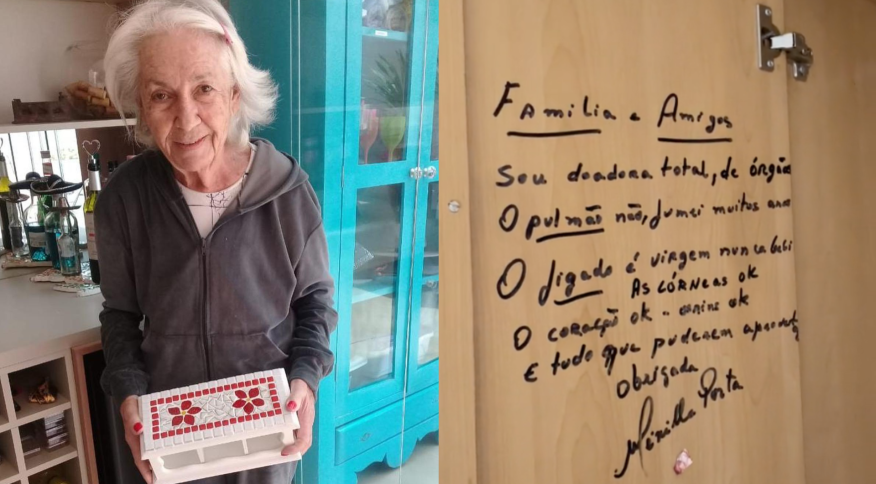 Familia e Amigos
Sou doadora total, de órgãos
O pulmão não, fumei muitos anos
O figado é virgem nunca bebi
As córneas ok
O coração ok -
E tudo que puderem aproveitar
Obrigada
Porta